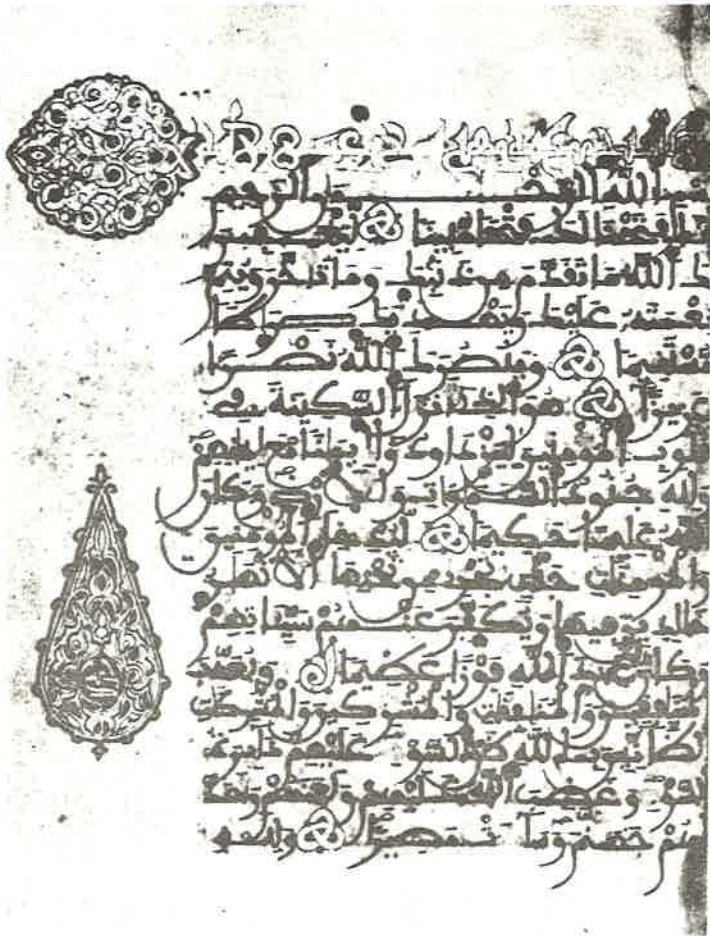 بسم الله الرحمن الرحيم
إنا فتحنا لك فتحا مبينا ليغفر
لك الله ما تقدم من ذنبك وما تأخر ويتم
نعمته عليك ويهديك صراطا
مستقيما وينصرك الله نصرا
عزيزا هو الذي أنزل السكينة في
قلوب المؤمنين ليزدادوا إيمانا مع إيمانهم
ولله جنود السموات والأرض وكان
الله عليما حكيما ليدخل المؤمنين
والمؤمنات جنات تجري من تحتها الأنهار
خالدين فيها ويكفر عنهم سيئاتهم
وكان ذلك عند الله فوزا عظيما ويعذب
المنافقين والمنافقات والمشركين والمشركات
الظانين بالله ظن السوء عليهم دائرة
السوء وغضب الله عليهم ولعنهم وأعد
لهم جهنم وساءت مصيرا ولله